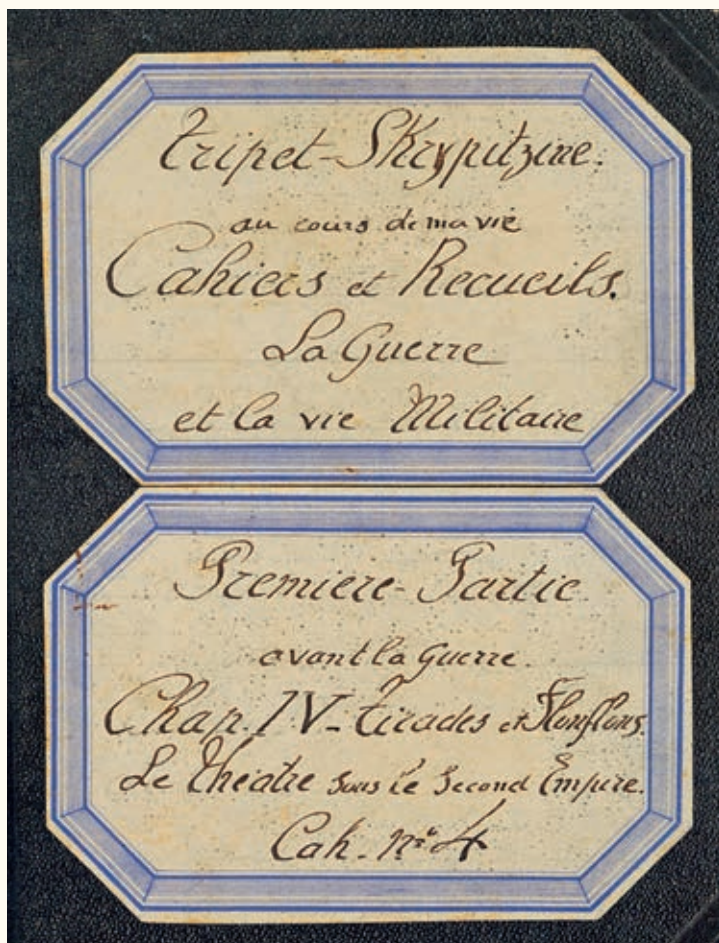 Tripet-Skrypitzine.
au cours de ma vie
Cahiers et Recueils.
La Guerre
et la vie Militaire
Premiere-Partie
avant la Guerre.
Chap. IV- Tirades et Flonflons.
Le Théatre sous le Second Empire.
Cah. nº 4